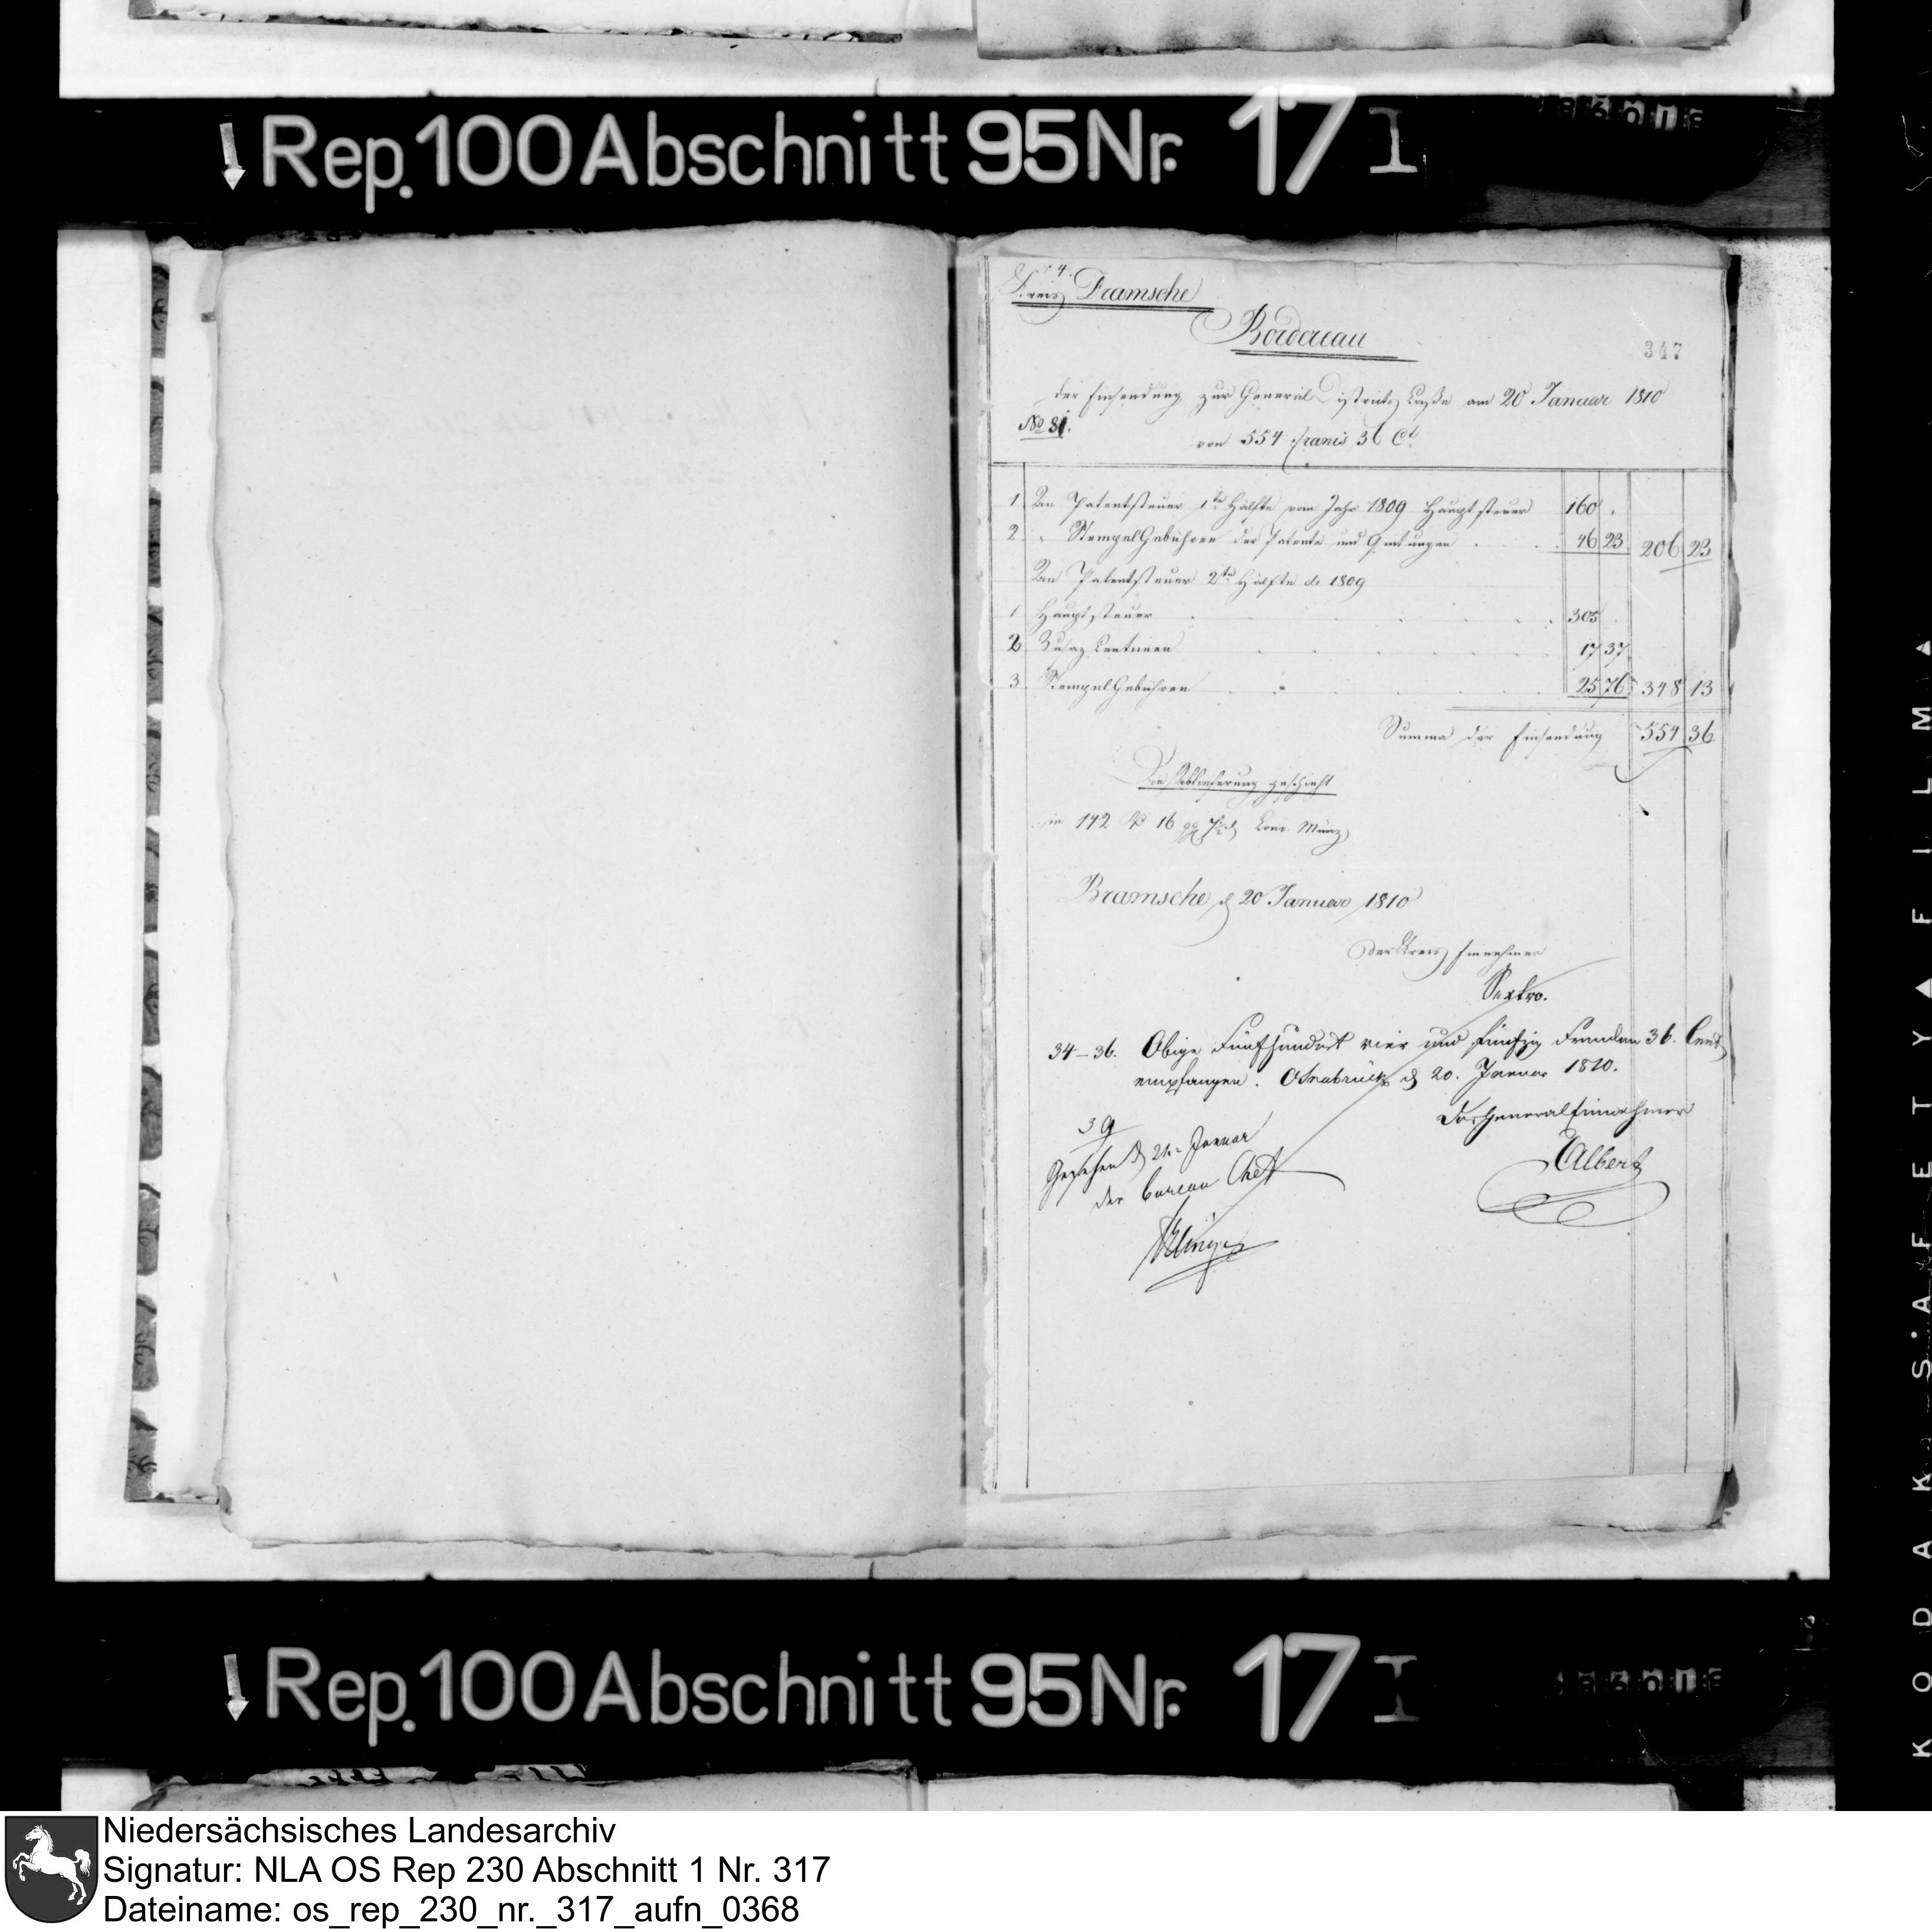 Rep. 100 Abschnitt 95 Nr. 17 I
4.
Kreis Bramsche
Bordereau
347
der Einsendung zur General Districts Casse am 20 Januar 1810
No 81.
von 554 francs 36 Ct.
1 An Patentsteuer 1te Hälfte vom Jahr 1809 Hauptsteuer 160 .
2 " Stempel Gebühren der Patente und Quitungen 46 23 206 23
An Patentsteuer 2te Hälfte de 1809
1 Hauptsteuer 305
2 Zusaz Centimen 17 37
3 Stempel Gebühren 25 76 348 13
Summa der Einsendung 554 36
Die Ablieferung geschieht
in 142 16 Conv. Münz
Bramsche d 20 Januar 1810
Der Kreis Einnehmer
Sextro.
34-36. Obige Fünfhundert vier und fünfzig Franken 36. Cent
empfangen. Osnabrück d 20. Januar 1810.
Der General Einnehmer
Albers
39
Gesehen d 21. Januar
der Bureau Chef
Rep. 100 Abschnitt 95 Nr. 17 I
KODAK SAFETY FILM
Niedersächsisches Landesarchiv
Signatur: NLA OS Rep 230 Abschnitt 1 Nr. 317
Dateiname: os_rep_230_nr._317_aufn_0368